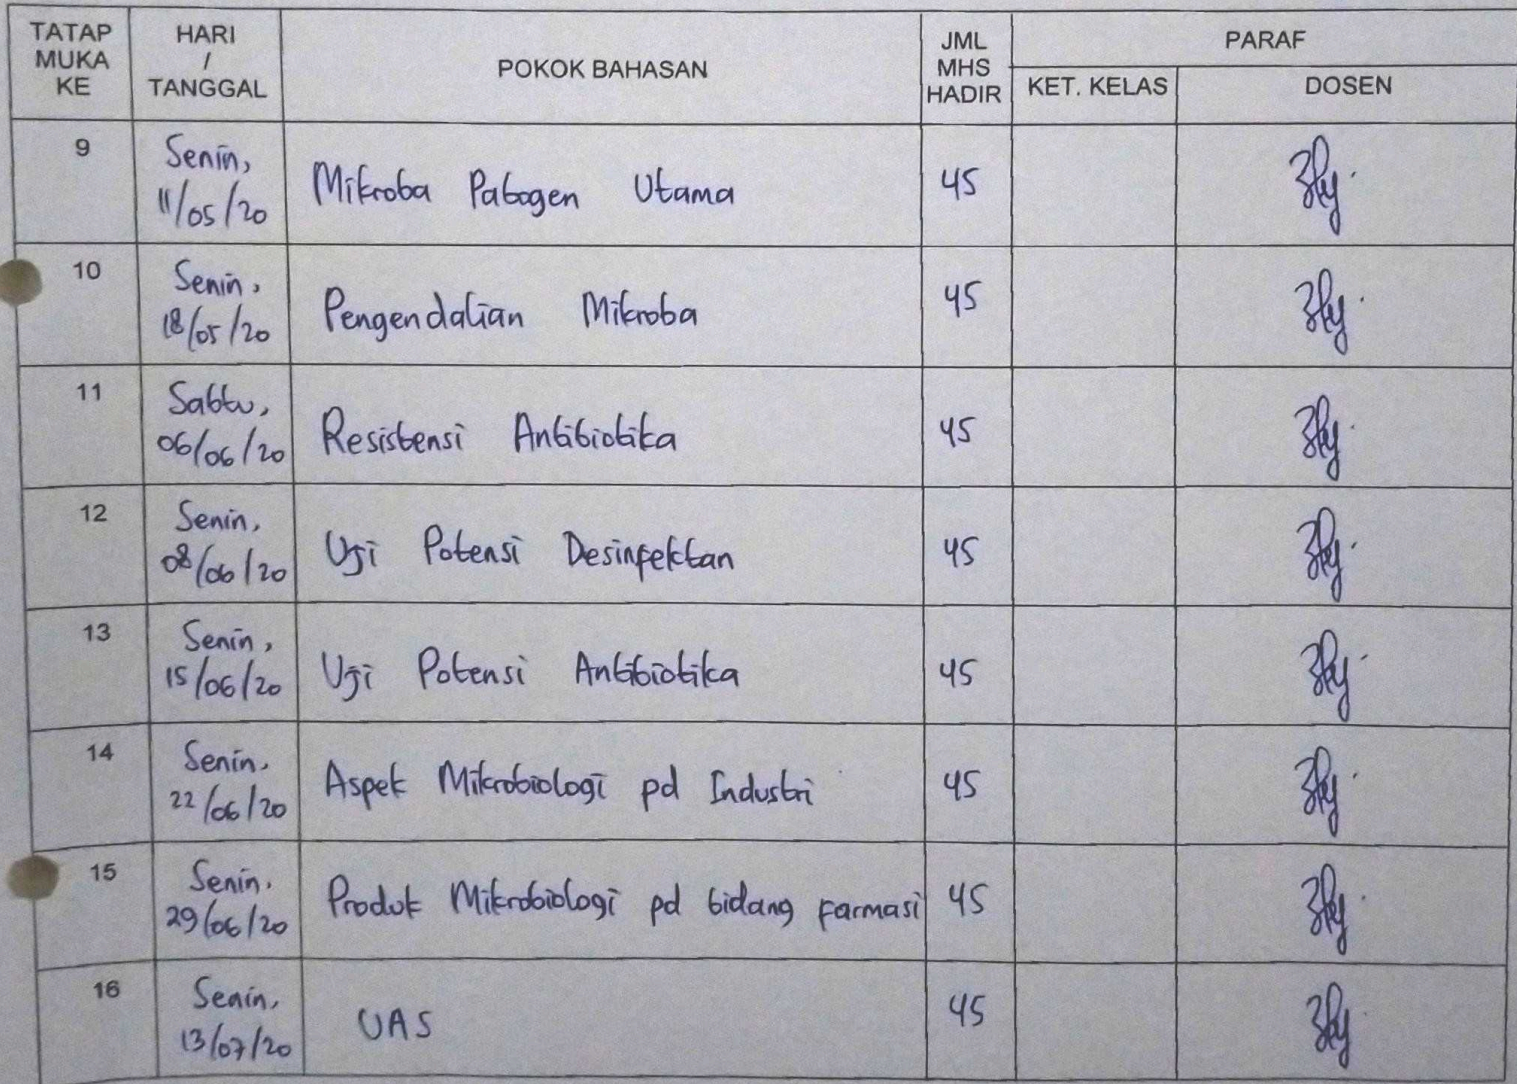 TATAP MUKA KE HARI / TANGGAL POKOK BAHASAN JML MHS HADIR PARAF
KET. KELAS DOSEN
9 Senin, 11/05/20 Mikroba Patogen Utama 45
10 Senin, 18/05/20 Pengendalian Mikroba 45
11 Sabtu, 06/06/20 Resistensi Antibiotika 45
12 Senin, 08/06/20 Uji Potensi Desinfektan 45
13 Senin, 15/06/20 Uji Potensi Antibiotika 45
14 Senin, 22/06/20 Aspek Mikrobiologi pd Industri 45
15 Senin, 29/06/20 Produk Mikrobiologi pd bidang farmasi 45
16 Senin, 13/07/20 UAS 45